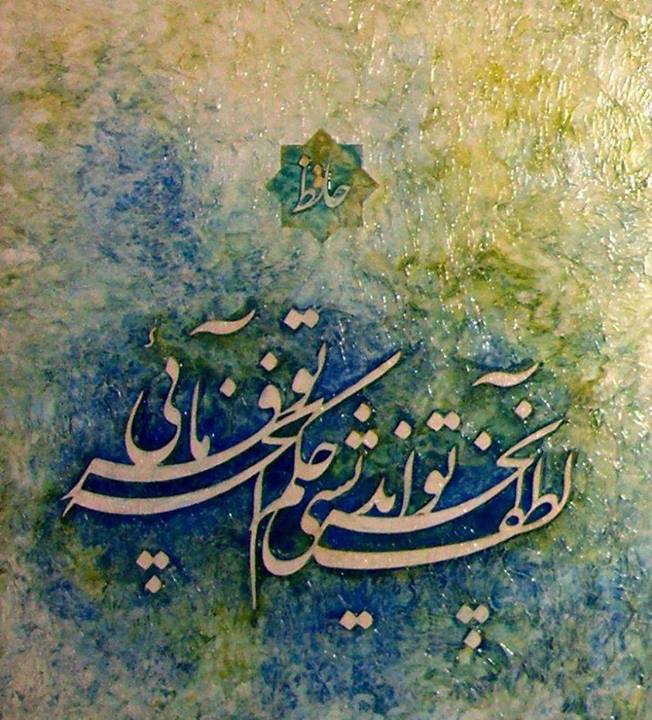 حافظ
لطف آنچه تو اندیشی حکم آنچه تو فرمائی